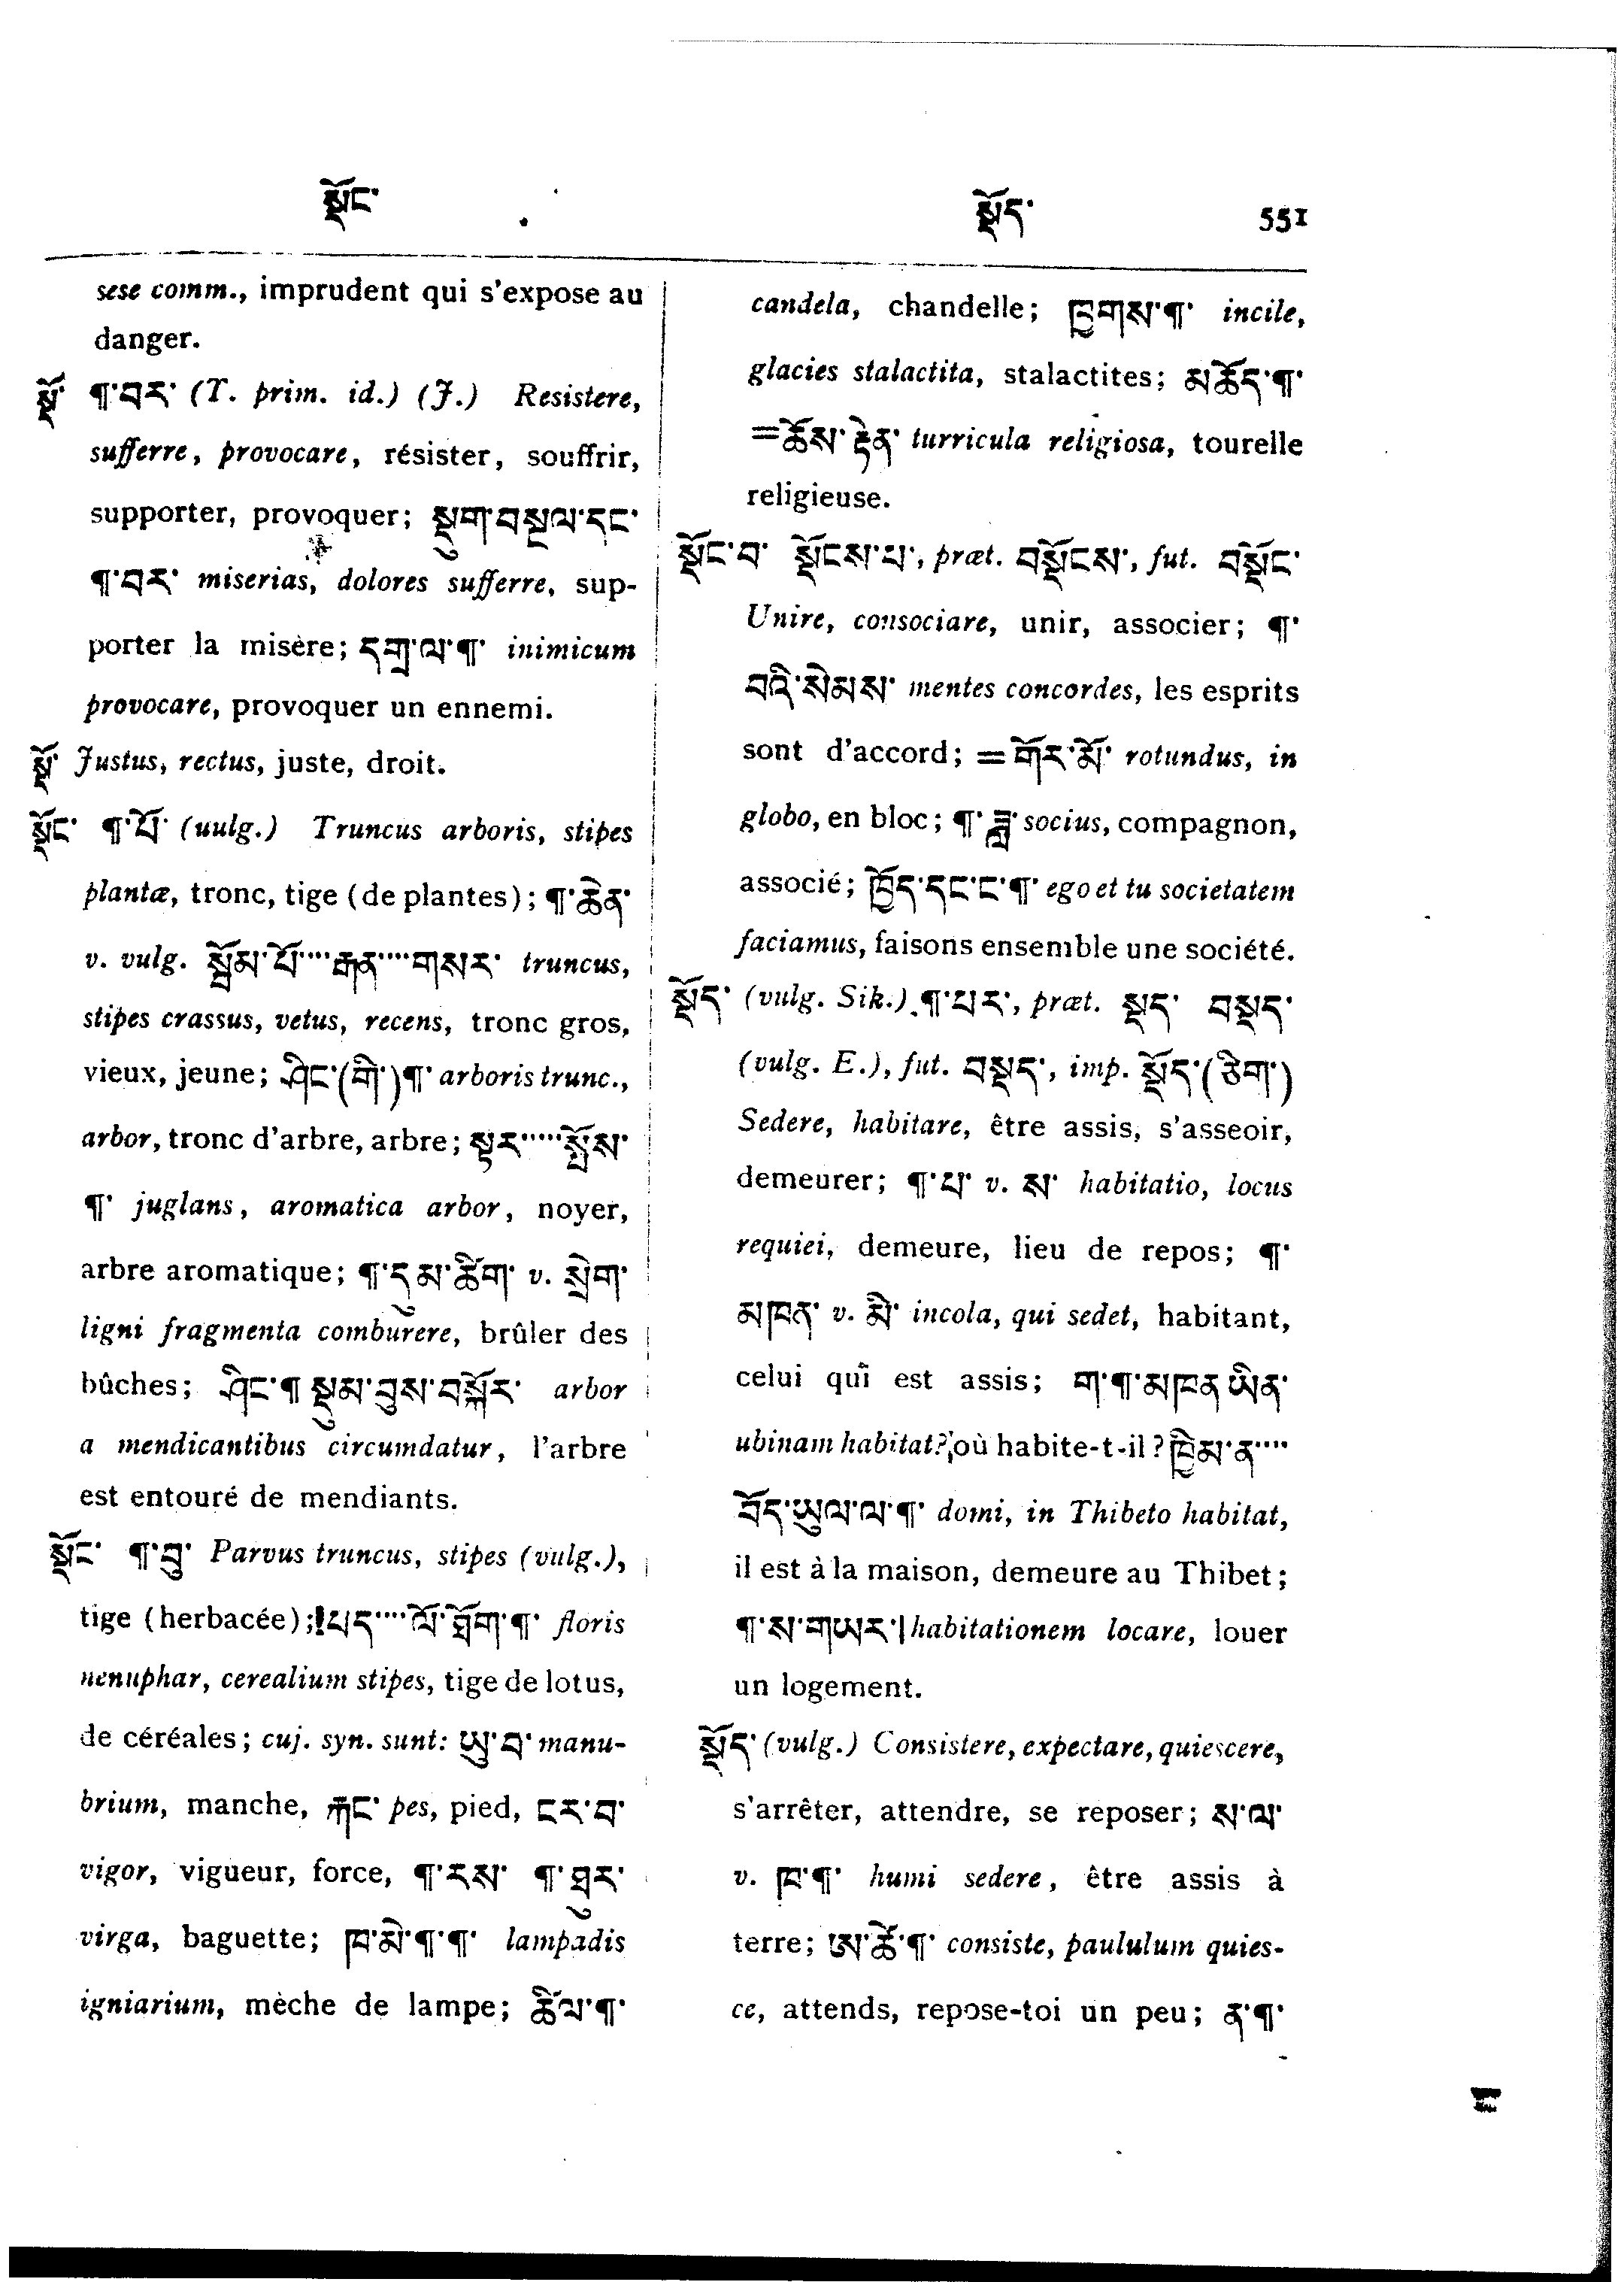 སྡོང་ སྡོད་ 551
sese comm., imprudent qui s'expose au
danger.
སྡོ་ ¶་བར་ (T. prim. id.) (J.) Resistere,
sufferre, provocare, résister, souffrir,
supporter, provoquer; སྡུག་བསྔལ་དང་
¶་བར་ miserias, dolores sufferre, sup-
porter la misère; དགྲ་ལ་¶་ inimicum
provocare, provoquer un ennemi.
སྡོ་ Justus, rectus, juste, droit.
སྡོང་ ¶་པོ་ (uulg.) Truncus arboris, stipes
plantæ, tronc, tige (de plantes); ¶་ཆེན་
v. vulg. སྦོམ་པོ་···· རྒན་···· གསར་ truncus,
stipes crassus, vetus, recens, tronc gros,
vieux, jeune; ཤིང་(གི་)¶་ arboris trunc.,
arbor, tronc d'arbre, arbre; སྟར་····· སྤོས་
¶་ juglans, aromatica arbor, noyer,
arbre aromatique; ¶་དུམ་ཚིག་ v. སྲེག་
ligni fragmenta comburere, brûler des
bûches; ཤིང་¶ སྡུམ་བུས་བསྐོར་ arbor
a mendicantibus circumdatur, l'arbre
est entouré de mendiants.
སྡོང་ ¶་བུ་ Parvus truncus, stipes (vulg.),
tige (herbacée); པད་···· ལོ་ཐོག་¶་ floris
nenuphar, cerealium stipes, tige de lotus,
de céréales; cuj. syn. sunt: ཡུ་བ་ manu-
brium, manche, རྐང་ pes, pied, ངར་བ་
vigor, vigueur, force, ¶་རས་ ¶་ཐུར་
virga, baguette; ཁ་མེ་¶་¶་ lampadis
igniarium, mèche de lampe; ཚིལ་¶་
candela, chandelle; ཁྱགས་¶་ incile,
glacies stalactita, stalactites; མཆོད་¶་
=ཆོས་རྟེན་ turricula religiosa, tourelle
religieuse.
སྡོང་བ་ སྡོངས་པ་, præt. བསྡོངས་, fut. བསྡོང་
Unire, consociare, unir, associer; ¶་
བའི་སེམས་ mentes concordes, les esprits
sont d'accord; = གོར་མོ་ rotundus, in
globo, en bloc; ¶་ཟླ་ socius, compagnon,
associé; ཁྱོད་དང་ང་¶་ ego et tu societatem
faciamus, faisons ensemble une société.
སྡོད་ (vulg. Sik.) ¶་པར་, præt. སྡད་ བསྡད་
(vulg. E.), fut. བསྡད་, imp. སྡོད་(ཅིག་)
Sedere, habitare, être assis, s'asseoir,
demeurer; ¶་པ་ v. ས་ habitatio, locus
requiei, demeure, lieu de repos; ¶་
མཁན་ v. མི་ incola, qui sedet, habitant,
celui qui est assis; ག་¶་མཁན ཡིན་
ubinam habitat? où habite-t-il? ཁྱིམ་ན་····
བོད་ཡུལ་ལ་¶་ domi, in Thibeto habitat,
il est à la maison, demeure au Thibet;
¶་ས་གཡར་ habitationem locare, louer
un logement.
སྡོད་ (vulg.) Consistere, expectare, quiescere,
s'arrêter, attendre, se reposer; ས་ལ་
v. ཁ་¶་ humi sedere, être assis à
terre; ཨ་ཙོ་¶་ consiste, paululum quies-
ce, attends, repose-toi un peu; ན་¶་